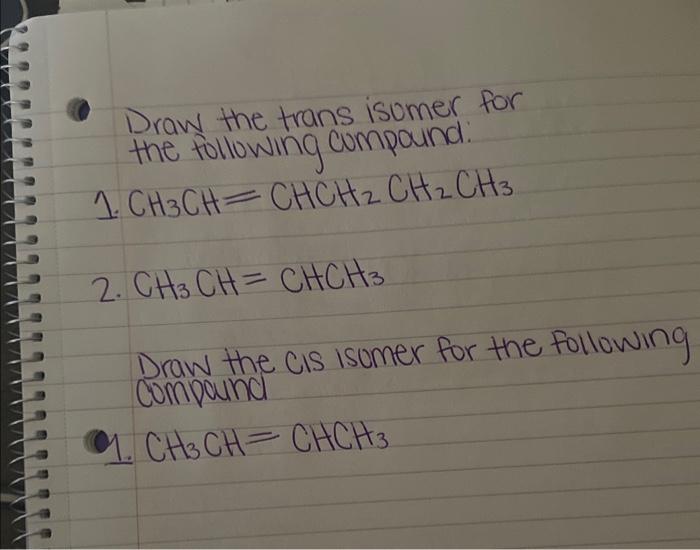 Draw the trans isomer for
the following compound:
1. CH3CH=CHCH2CH2CH3
2. CH3CH=CHCH3
Draw the cis isomer for the following
compound
1. CH3CH=CHCH3